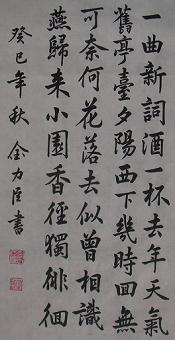 一曲新詞酒一杯去年天氣
舊亭臺夕陽西下幾時回無
可奈何花落去似曾相識
燕歸来小園香徑獨徘徊
癸巳年秋金力臣書